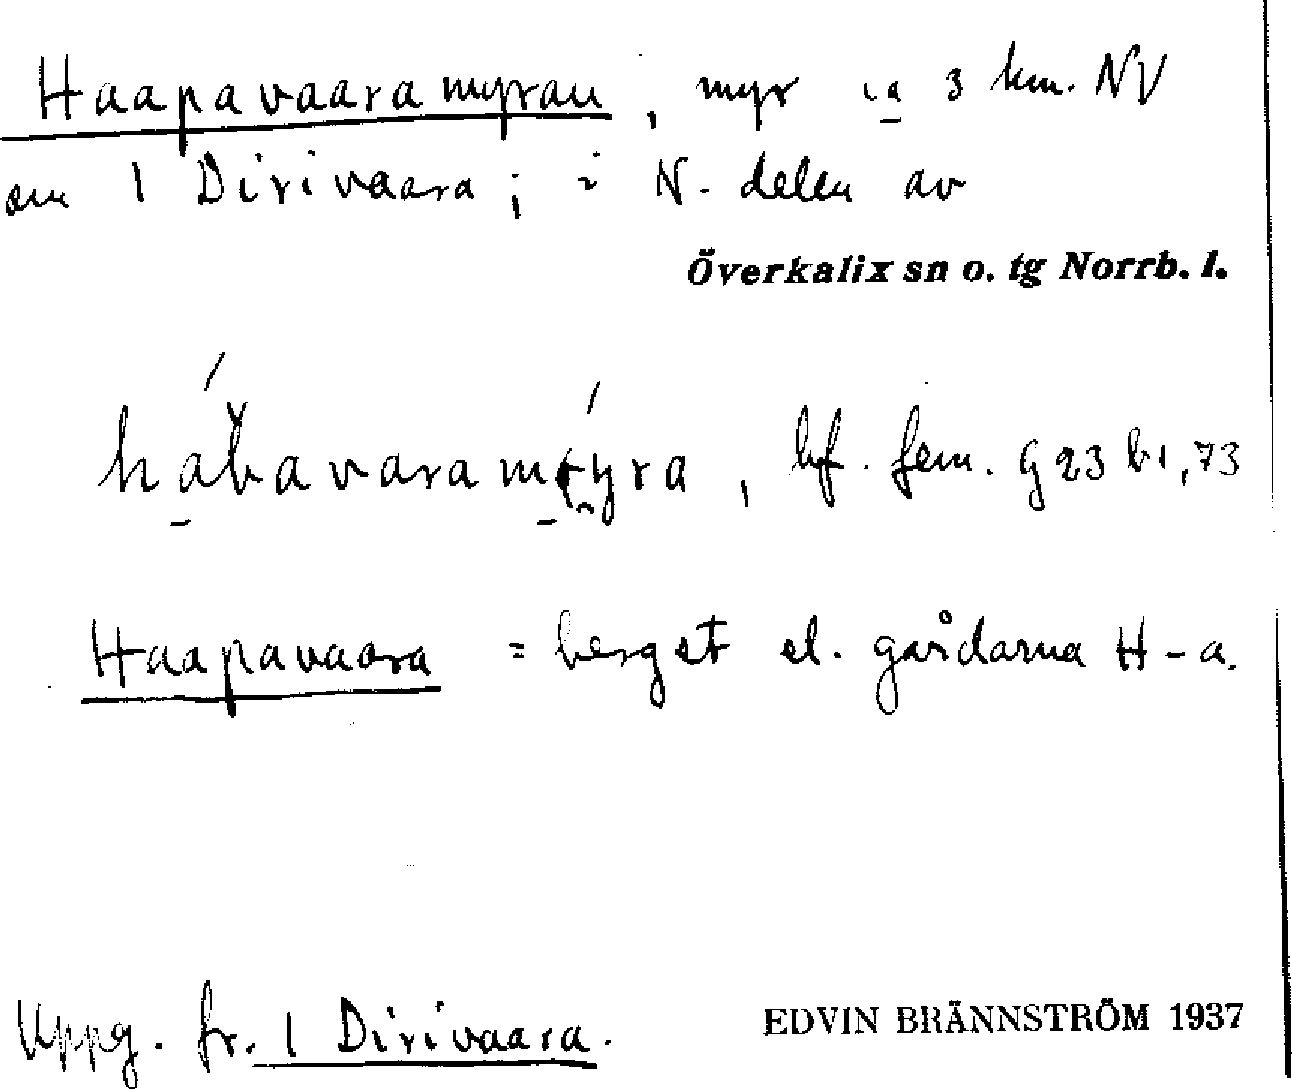 Haapavaaramyran, myr ca 3 km. NV
om 1 Dirivaara; i N. delen av
Överkalix sn o. tg Norrb. l.
bf. fem. G 23 b1, 73
Haapavaara = berget el. gårdarna H-a.
Uppg. fr. 1 Dirivaara.
EDVIN BRÄNNSTRÖM 1937